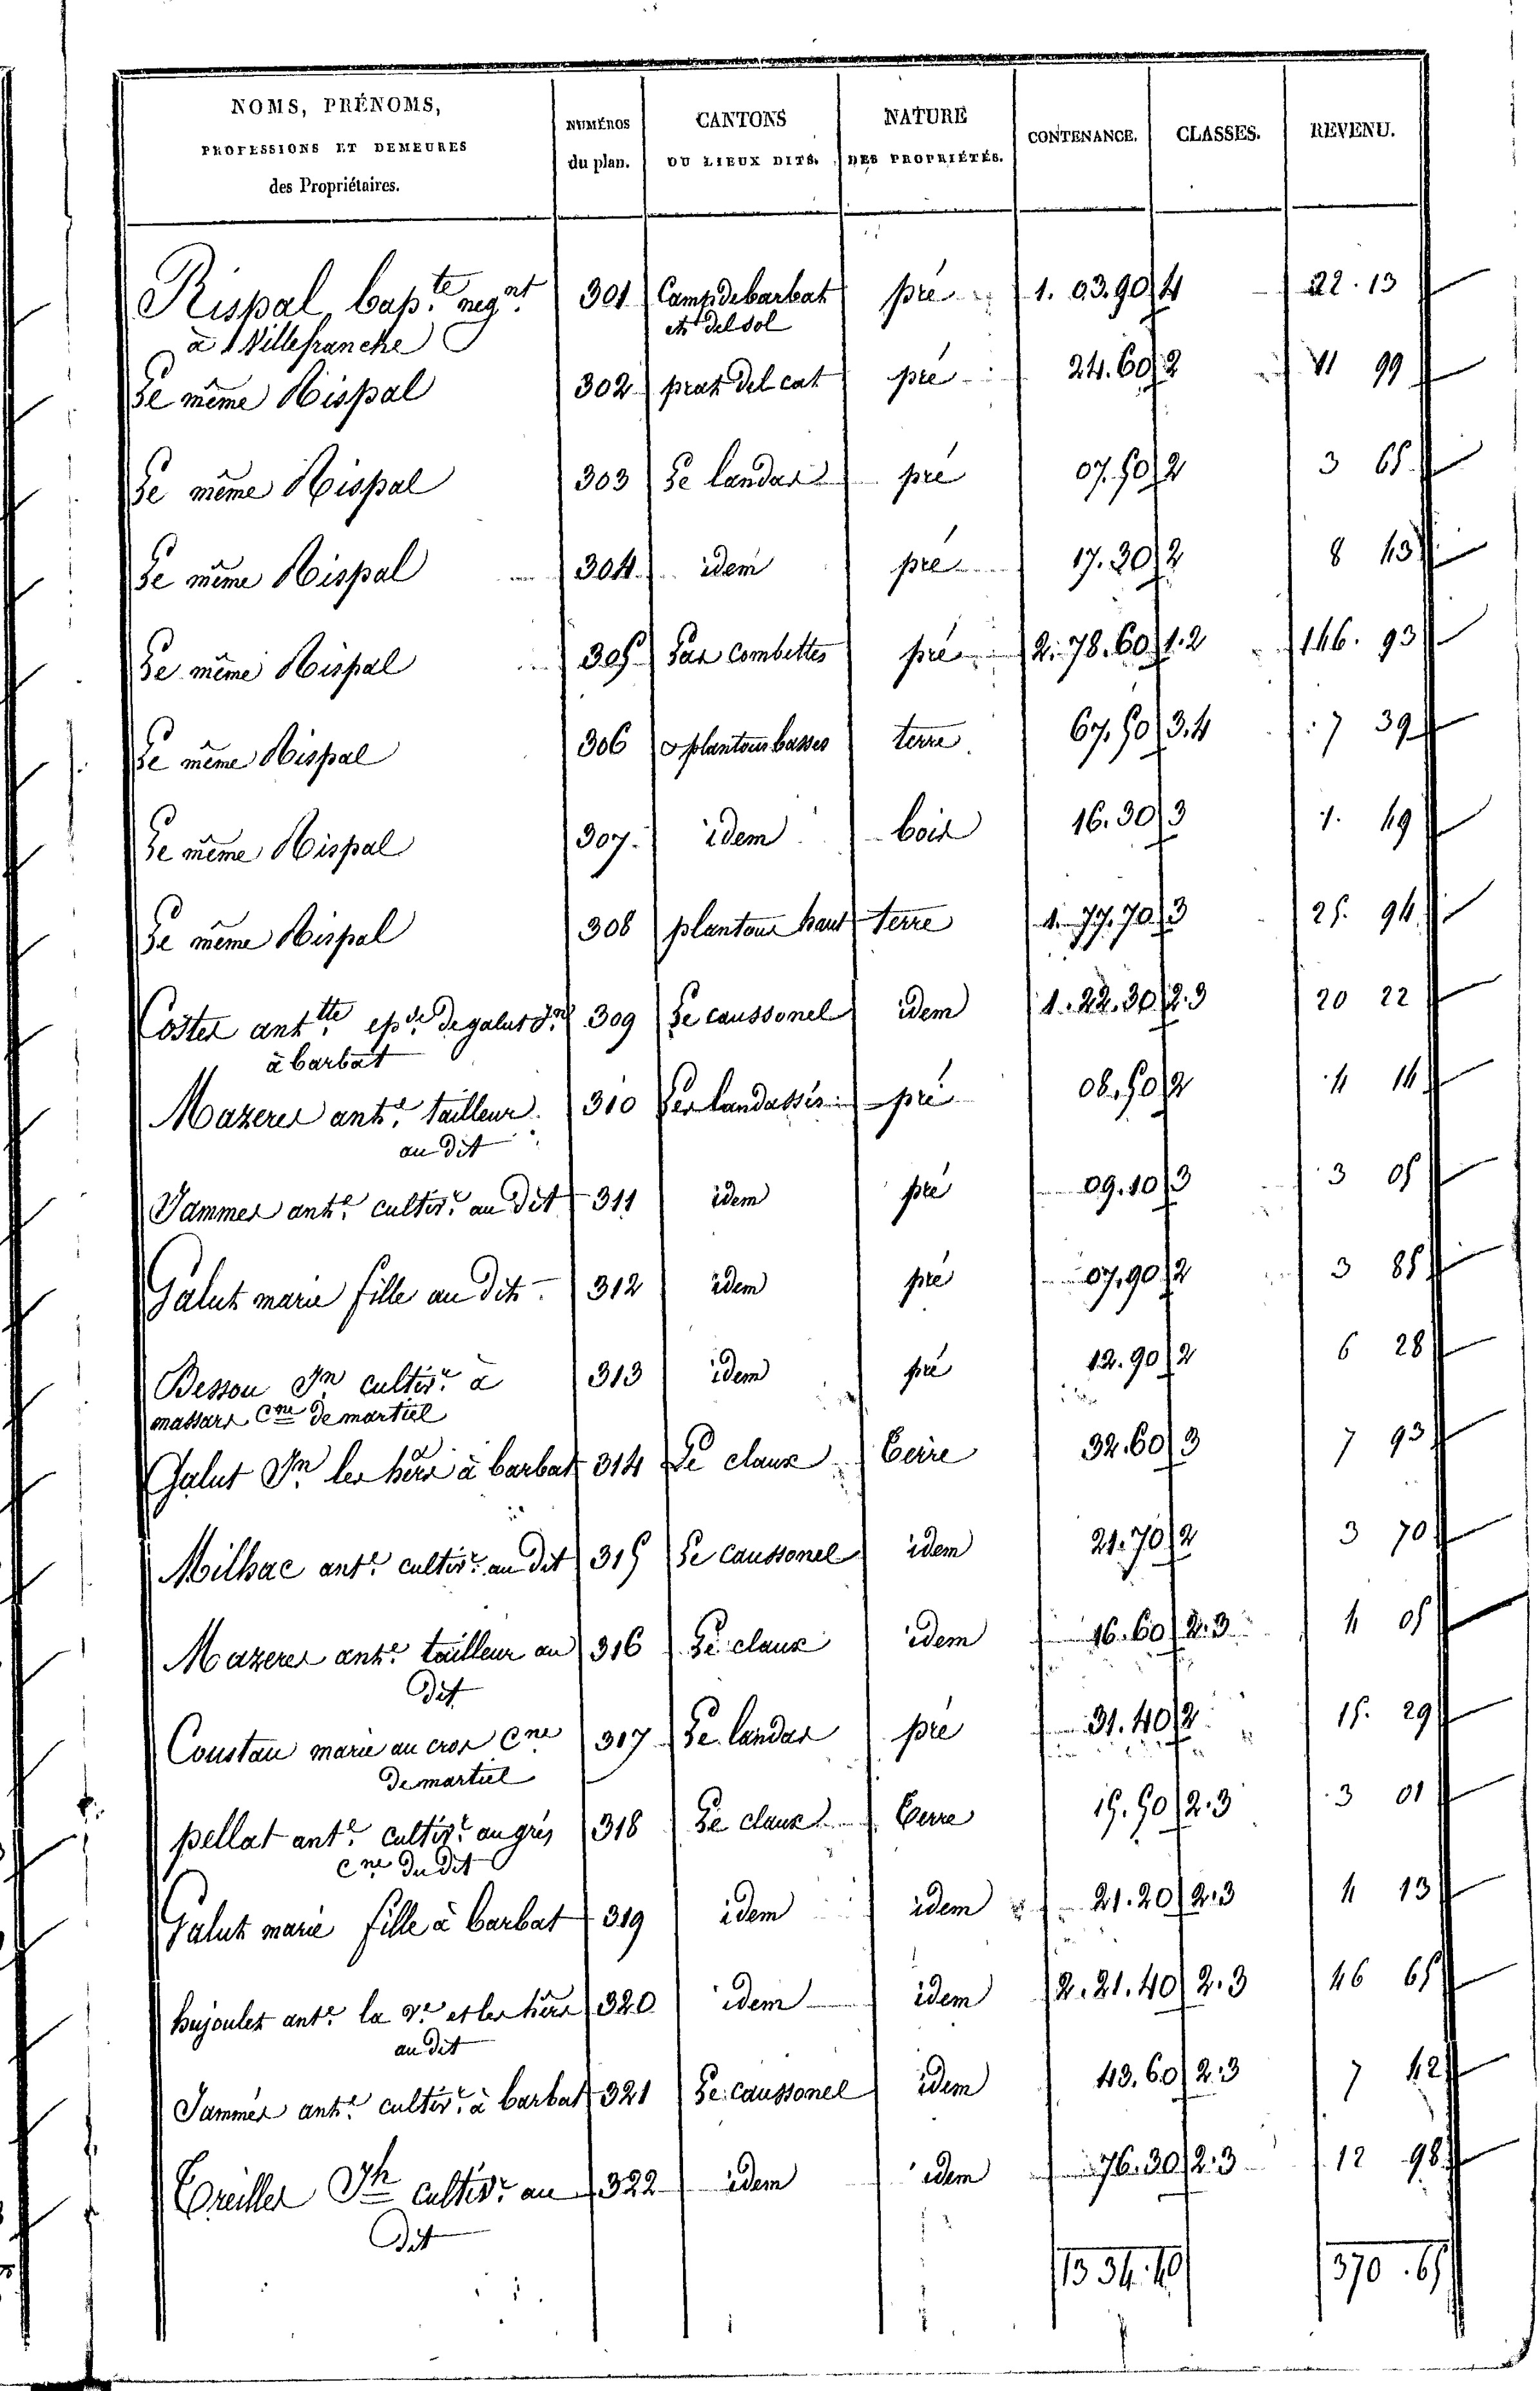 NOMS, PRÉNOMS, PROFESSIONS ET DEMEURES des Propriétaires. | NUMÉROS du plan. | CANTONS OU LIEUX DITS. | NATURE DES PROPRIÉTÉS. | CONTENANCE. | CLASSES. | REVENU.
Rispal bap.te neg.nt 301 Camp de barbat pré 1. 03. 90 4 22. 13
à Villefranche et del sol
Le même Rispal 302 prat del cat pré 24. 60 2 11 99
Le même Rispal 303 Le landas pré 07. 50 2 3 65
Le même Rispal 304 idem pré 17. 30 2 8 43
Le même Rispal 305 Las combettes pré 2. 78. 60 1. 2 146. 93
Le même Rispal 306 plantous basses terre 67. 50 3. 4 7 39
Le même Rispal 307 idem bois 16. 30 3 1. 49
Le même Rispal 308 plantous haut terre 1. 77. 70 3 25. 94
Costes ant.tte ep.se de galut J.n 309 Le caussonel idem 1. 22. 30 2. 3 20 22
à barbat
Mazeres ant.e tailleur 310 Les landassés pré 08. 50 2 4 14
au dit
Jammes ant.e cultiv.r au dit 311 idem pré 09. 10 3 3 05
Galut marie fille au dit 312 idem pré 07. 90 2 3 85
Bessou J.n cultiv.r à 313 idem pré 12. 90 2 6 28
massars C.ne de martiel
Galut J.n les hérs à barbat 314 Le claux terre 32. 60 3 7 93
Milhac ant.e cultiv.r au dit 315 Le caussonel idem 21. 70 2 3 70
Mazeres ant.e tailleur au 316 Le claux idem 16. 60 2. 3 4 05
dit
Coustau marie au cros C.ne 317 Le landas pré 31. 40 2 15. 29
de martiel
pellat ant.e cultiv.r au grés 318 Le claux terre 15. 50 2. 3 3 01
C.ne du dit
Galut marie fille à barbat 319 idem idem 21. 20 2. 3 4 13
bujoulet ant.e la v.e et les hérs 320 idem idem 2. 21. 40 2. 3 46 65
au dit
Jammes ant.e cultiv.r à barbat 321 Le caussonel idem 43. 60 2. 3 7 42
Treilles J.h cultiv.r au 322 idem idem 76. 30 2. 3 12 98
dit
13 34. 40 370. 65